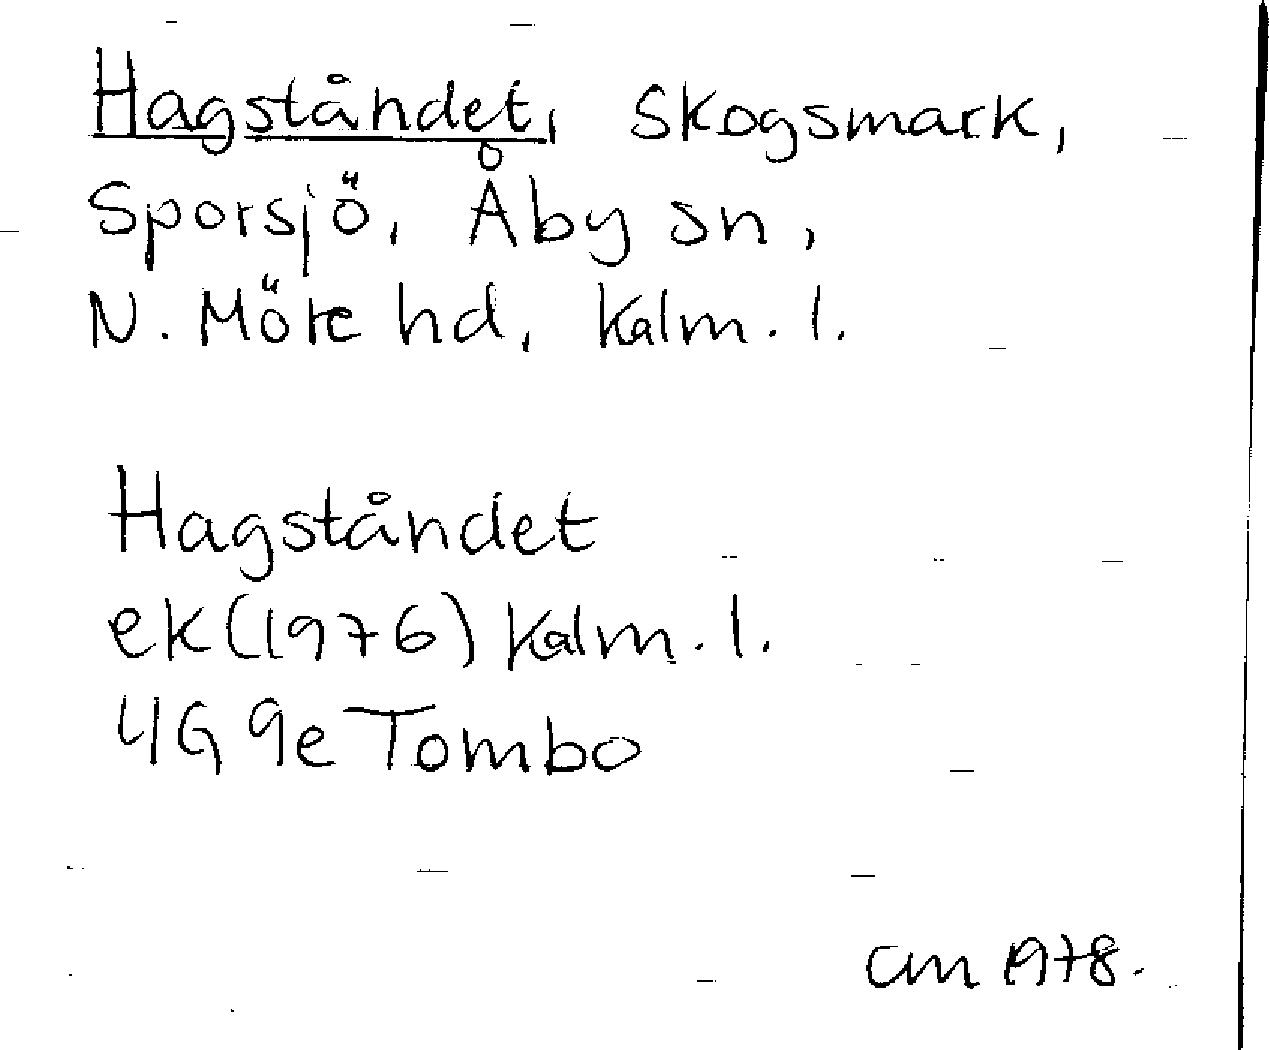 Hagståndet, skogsmark,
Sporsjö, Åby sn,
N. Möre hd, Kalm. l.
Hagståndet
ek (1976) Kalm. l.
4G 9e Tombo
CM 1978.